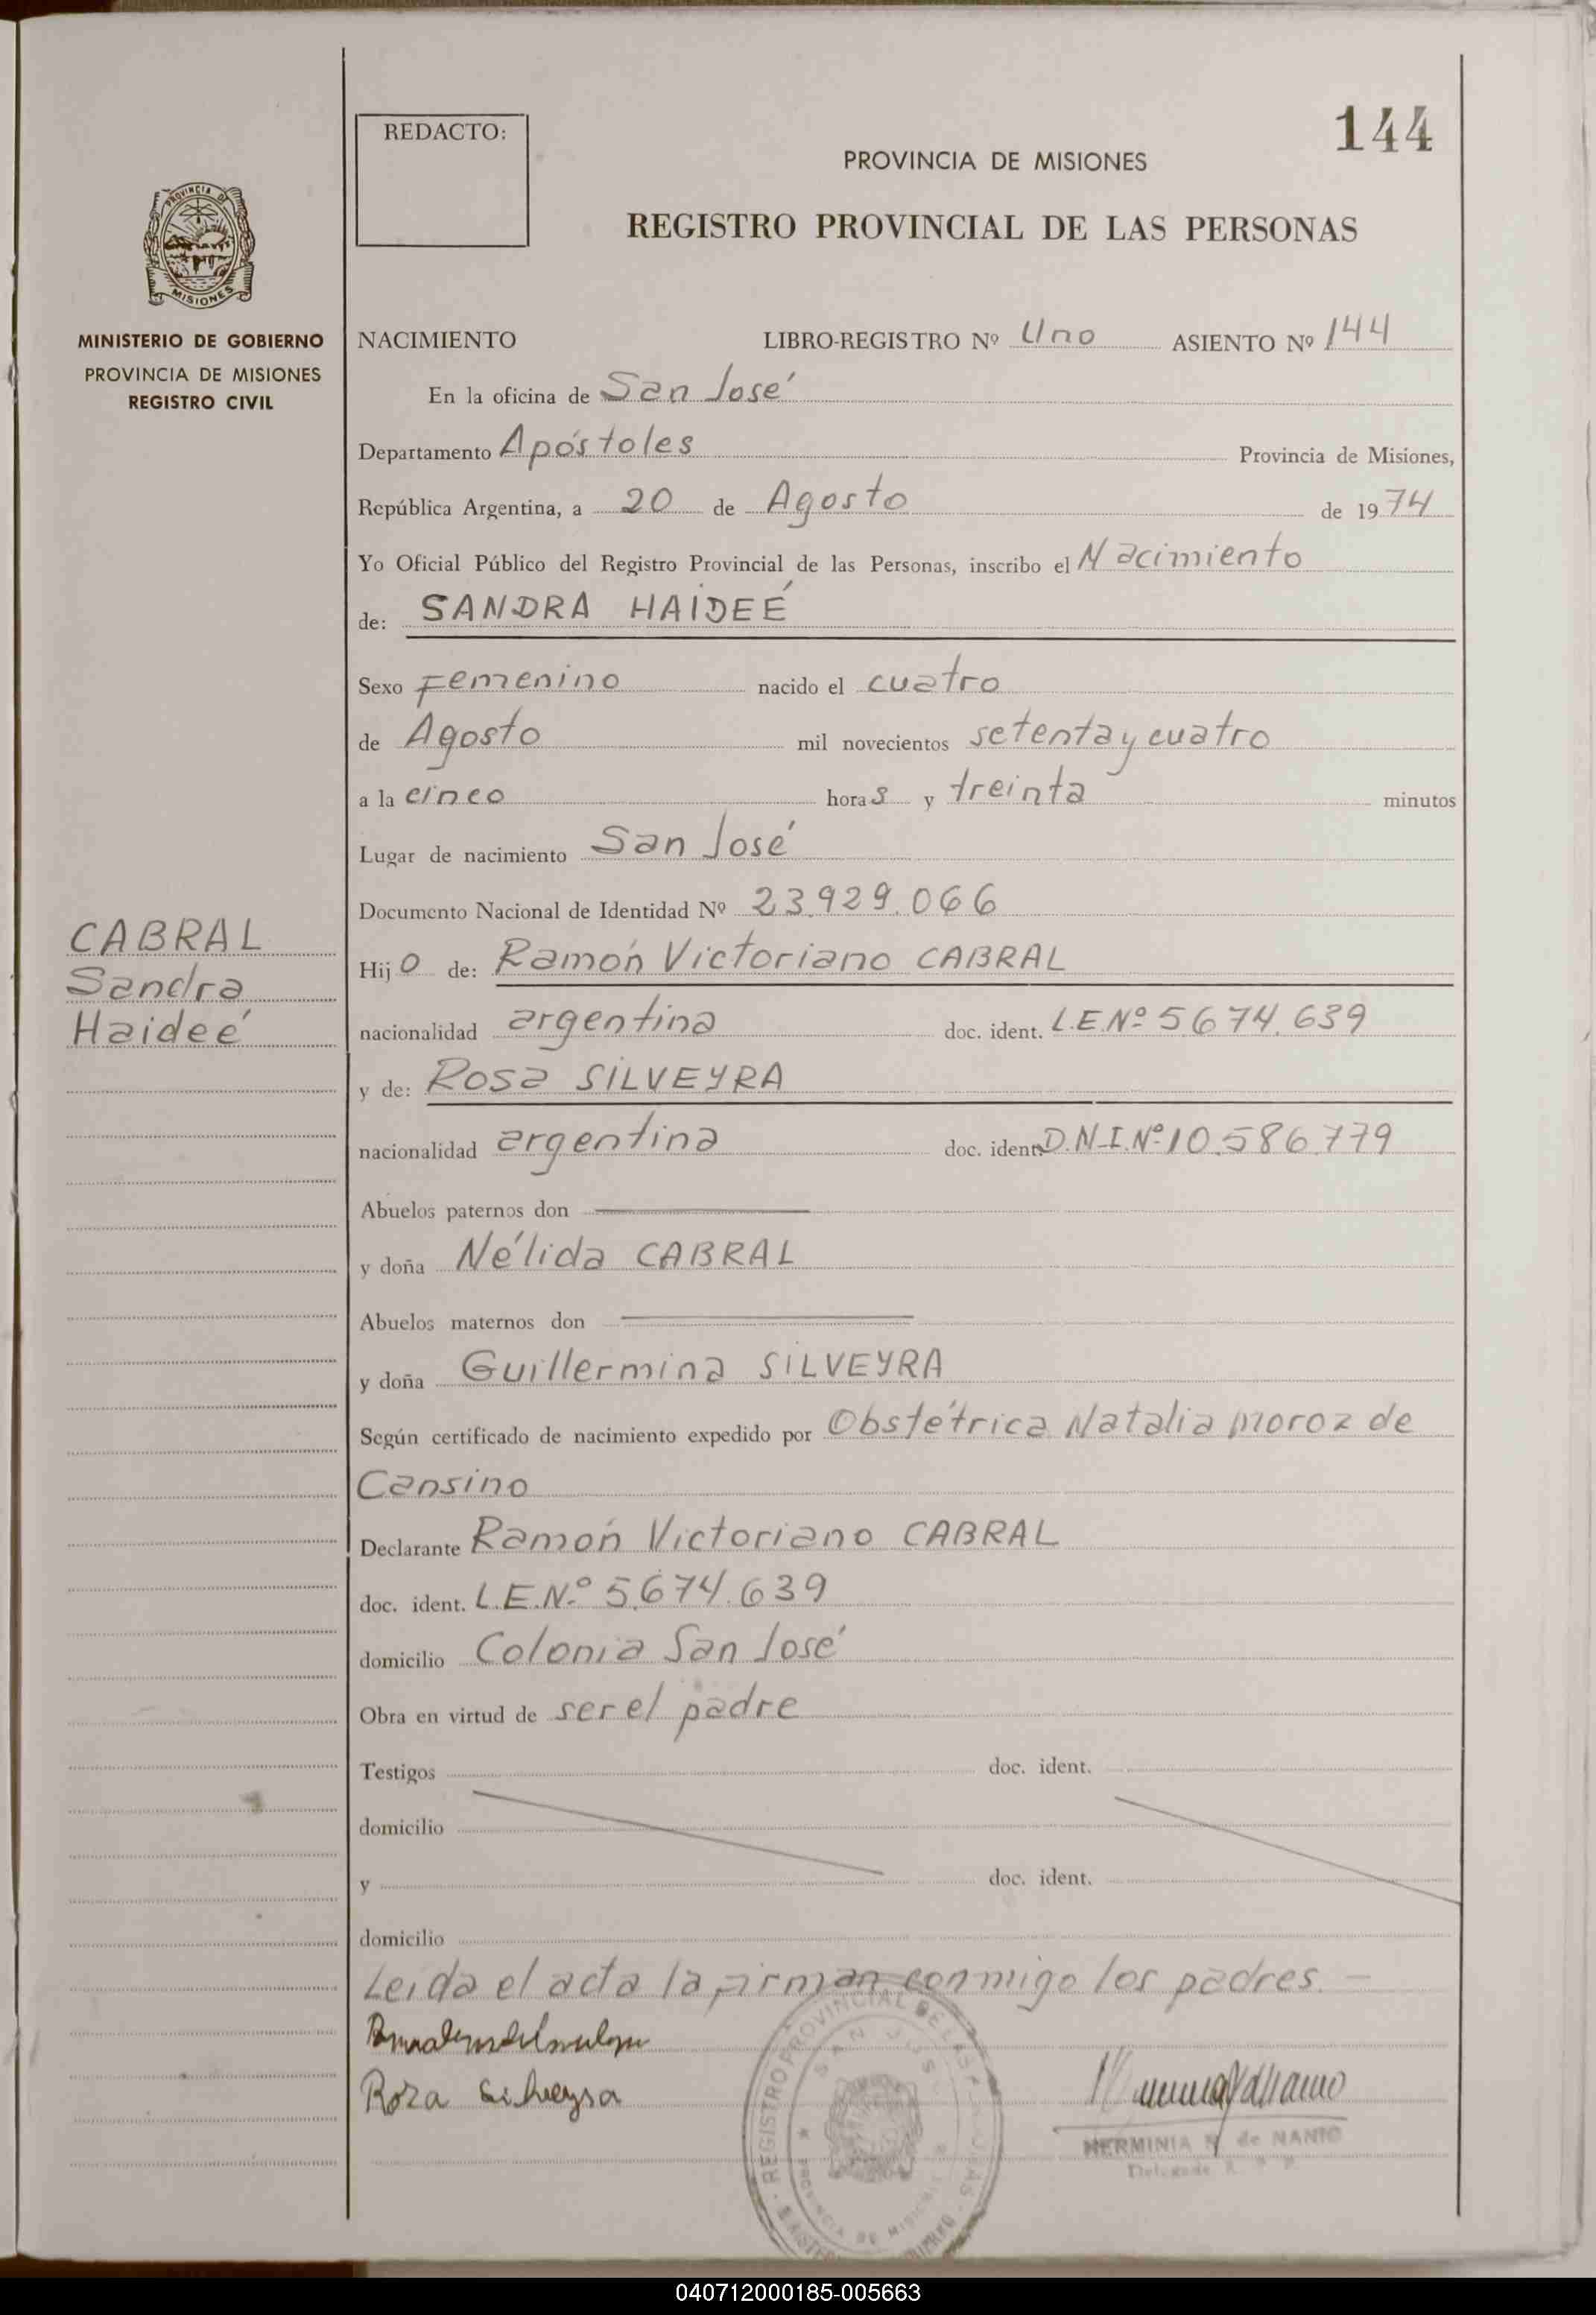 144
REDACTO:
PROVINCIA DE MISIONES
REGISTRO PROVINCIAL DE LAS PERSONAS
PROVINCIA DE
MISIONES
MINISTERIO DE GOBIERNO
PROVINCIA DE MISIONES
REGISTRO CIVIL
NACIMIENTO LIBRO-REGISTRO Nº Uno ASIENTO Nº 144
En la oficina de San José
Departamento Apóstoles Provincia de Misiones,
República Argentina, a 20 de Agosto de 1974
Yo Oficial Público del Registro Provincial de las Personas, inscribo el Nacimiento
de: SANDRA HAIDEÉ
Sexo Femenino nacido el cuatro
de Agosto mil novecientos setenta y cuatro
a la cinco horas y treinta minutos
Lugar de nacimiento San José
Documento Nacional de Identidad Nº 23.929.066
CABRAL
Sandra
Haideé
Hijo de: Ramón Victoriano CABRAL
nacionalidad argentina doc. ident. L.E.Nº 5.674.639
y de: Rosa SILVEYRA
nacionalidad argentina doc. ident. D.N.I.Nº 10.586.779
Abuelos paternos don
y doña Nélida CABRAL
Abuelos maternos don
y doña Guillermina SILVEYRA
Según certificado de nacimiento expedido por Obstétrica Natalia Moroz de
Cansino
Declarante Ramón Victoriano CABRAL
doc. ident. L.E.Nº 5.674.639
domicilio Colonia San José
Obra en virtud de ser el padre
Testigos doc. ident.
domicilio
y doc. ident.
domicilio
Leida el acta la firman conmigo los padres.—
Rosa Silveysa
REGISTRO PROVINCIAL DE LAS
SAN JOS
PROVINCIA DE MISIONES
HERMINIA de NANIO
040712000185-005663